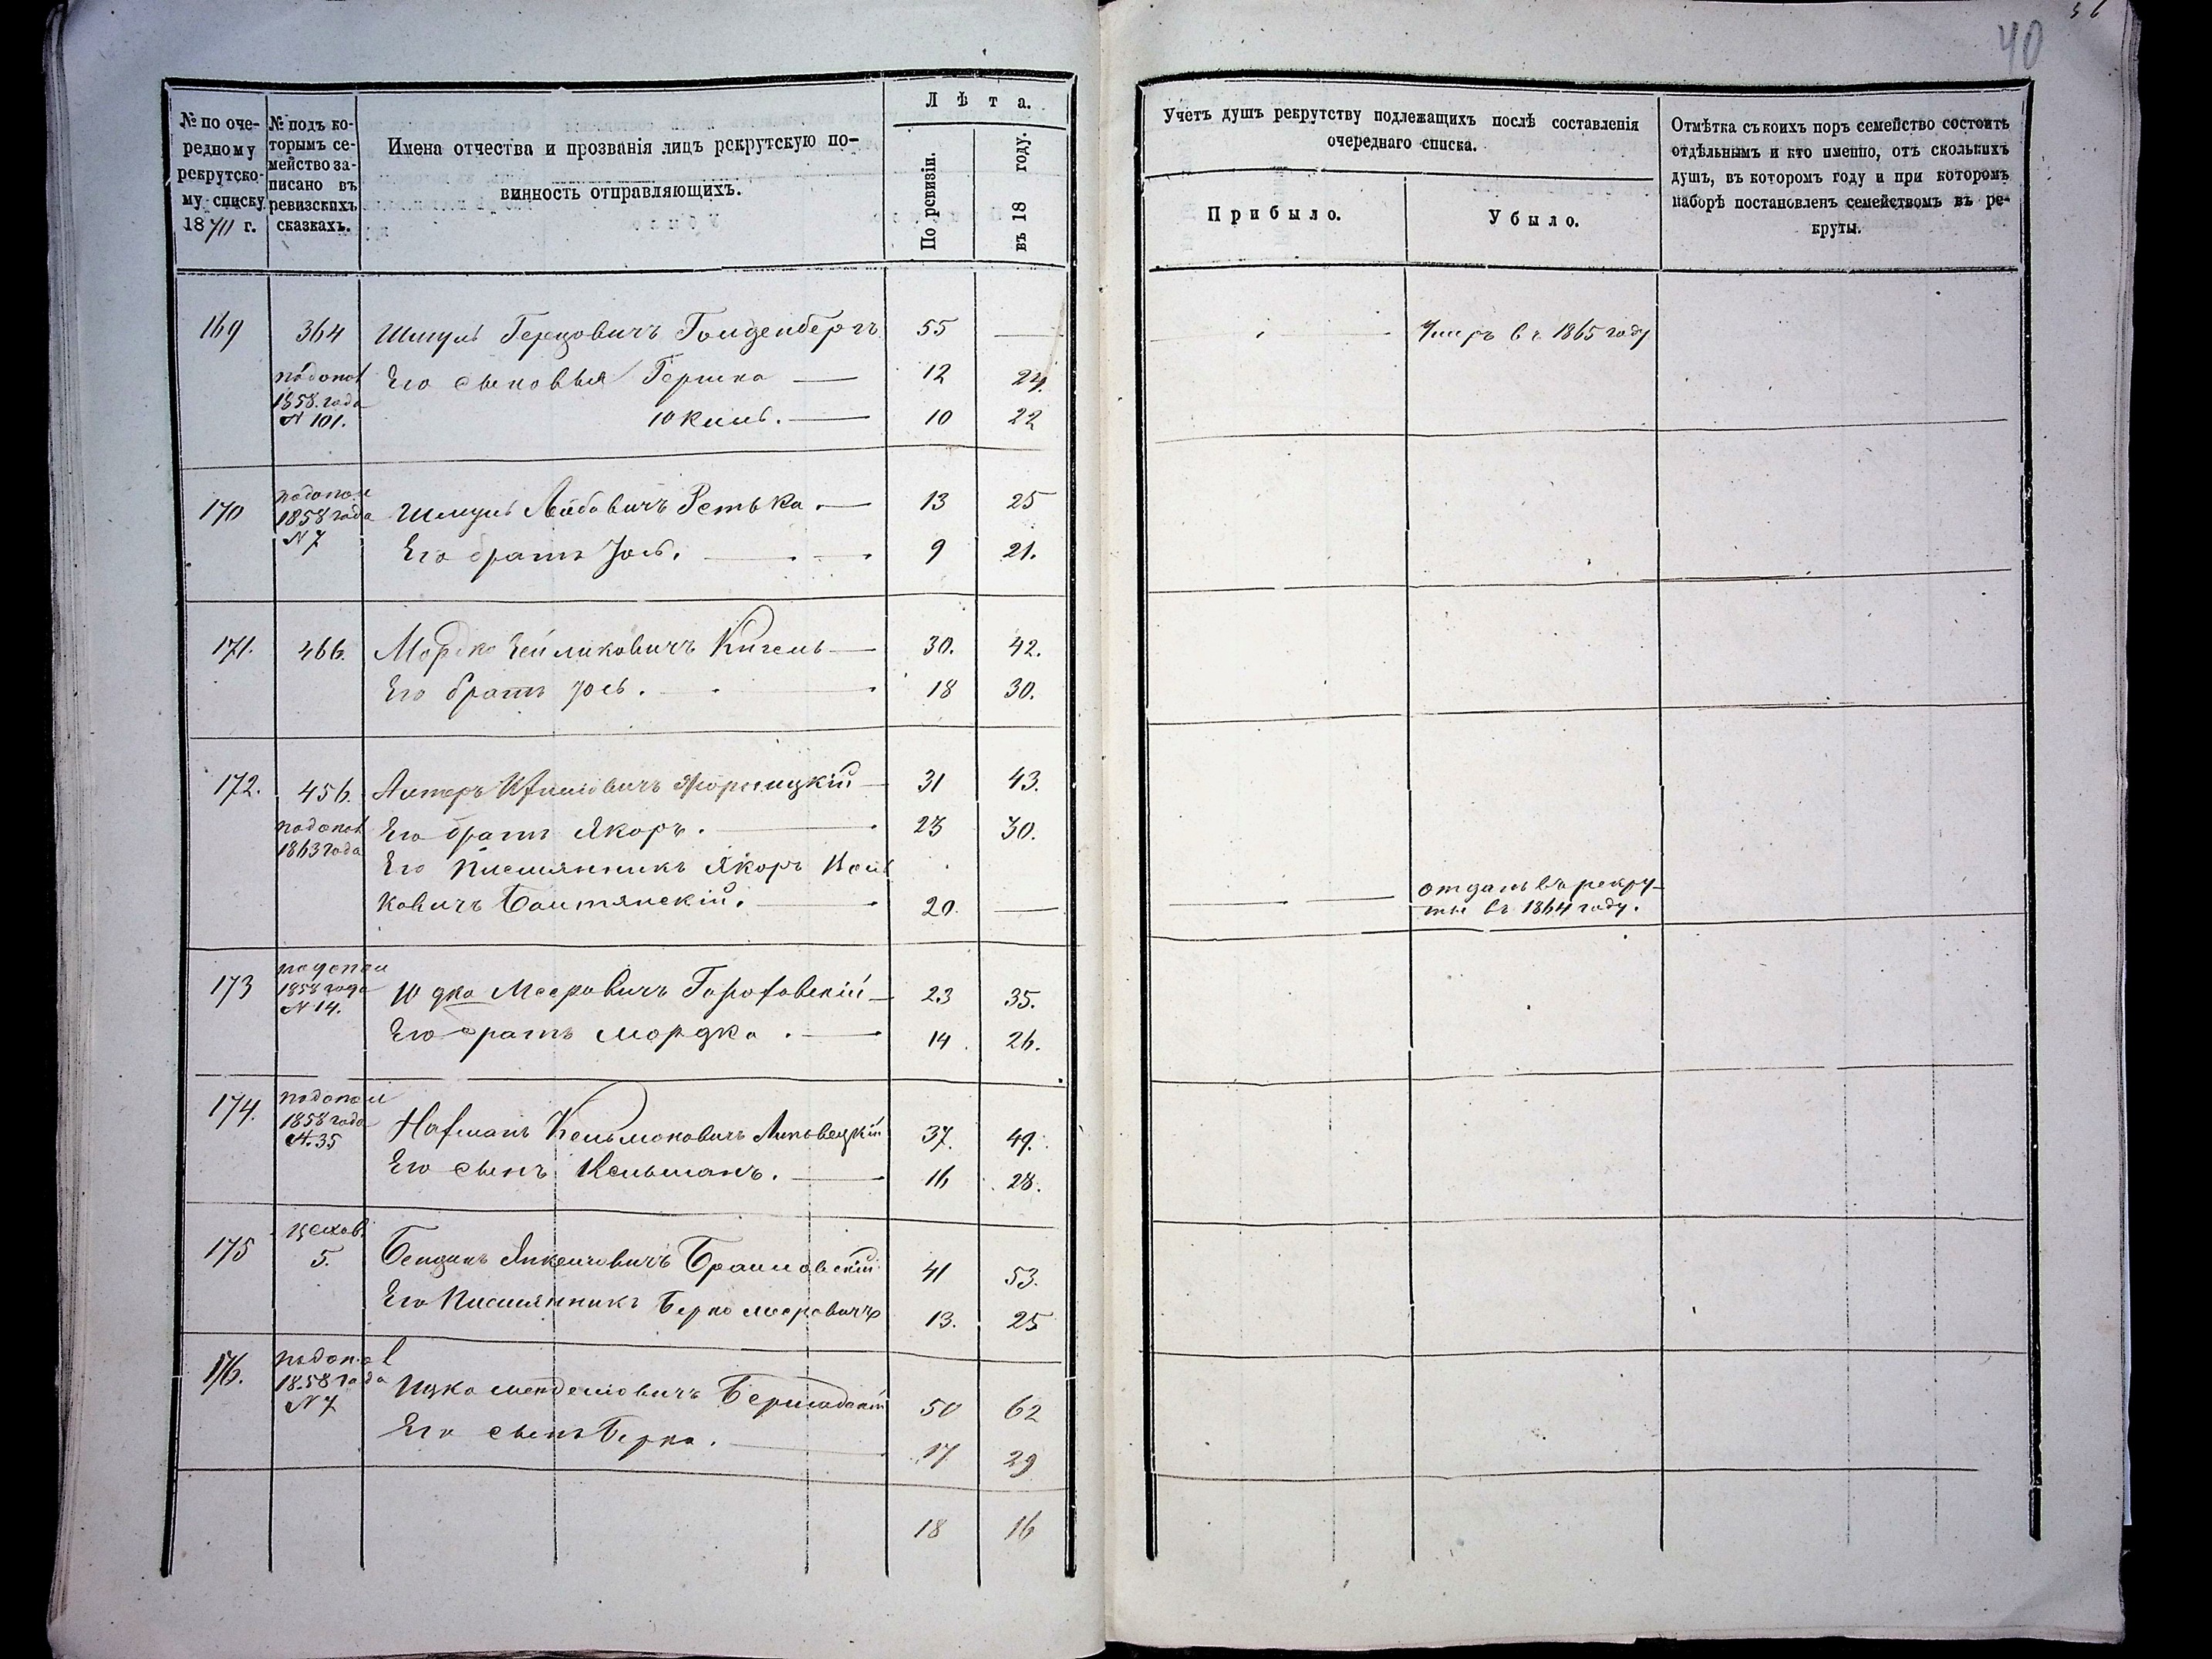 40
№ по оче-
редному
рекрутско-
му списку
1870 г.
№ подъ ко-
торымъ се-
мейство за-
писано въ
ревизскихъ
сказкахъ.
Имена отчества и прозванія лицъ рекрутскую по-
винность отправляющихъ.
Лѣта.
По ревизіи.
въ 18 году.
Учетъ душъ рекрутству подлежащихъ послѣ составленія
очереднаго списка.
Прибыло.
Убыло.
Отмѣтка съ коихъ поръ семейство состоитъ
отдѣльнымъ и кто именно, отъ сколькихъ
душъ, въ котором году и при котором
наборѣ постановленъ семействомъ въ ре-
круты.
169 364 Шмуль Герцовичъ Гольденбергъ 55 — Умеръ въ 1865 году
подопол 1858 года N 101.
Его сыновья Гершко — 12 24.
Юкиль. — 10 22
170 подопол 1858 года N 7 Шмуль Лейбовичъ Ретька. — 13 25
Его братъ Іось. 9 21.
171. 466. Мордко Зейликовичъ Кигель — 30. 42.
Его братъ Іось. 18 30.
172. 456. Альтеръ 31 43.
подопол 1863 года
Его братъ Якоръ. 23 30.
Его Племянникъ Якоръ
ковичъ 20. — отданъ въ рекру-
ты въ 1864 году.
173 подопол 1858 года N 14. Юдко Мееровичъ Гороховскій — 23 35.
Его братъ Мордко. — 14 26.
174. подопол 1858 года N. 35 Нахманъ Кельмоновичъ Липовецкій 37. 49.
Его сынъ Кельманъ. — 16 28.
175 цехов. 5. Янкелевичъ Браиловскій 41 53.
Его Племянникъ Берко Мееровичъ 13. 25
176. подопол 1858 года N 7 Ицко Менделіовичъ Бершадскій 50 62
Его сынъ Берко. 17 29
18 16